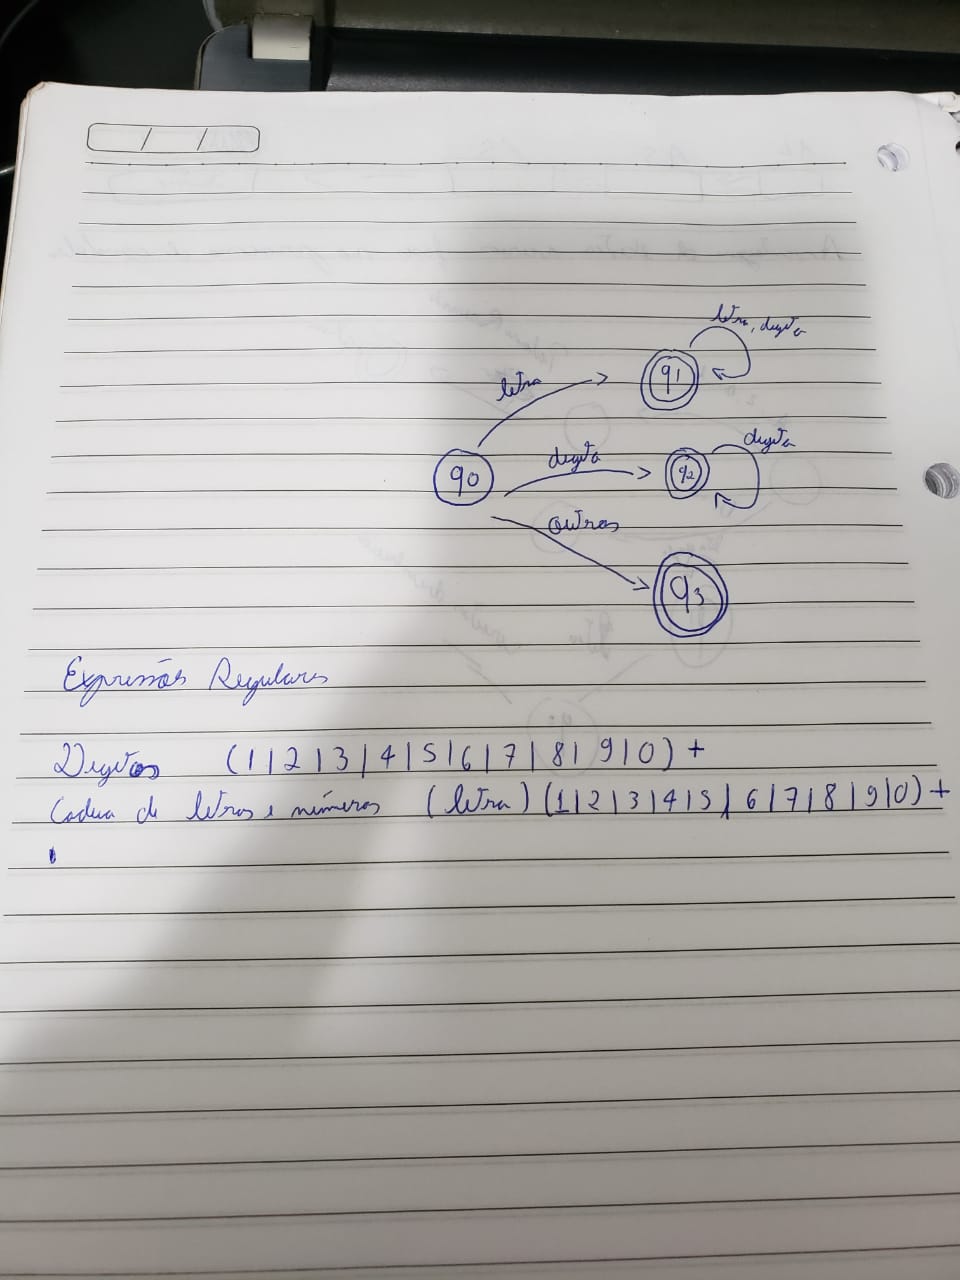 letra, digito
q1
letra
digito
q0
digito
q2
outros
q3
Expressões Regulares
Digitos (1|2|3|4|5|6|7|8|9|0)+
Cadeia de letras e números (letra)(1|2|3|4|5|6|7|8|9|0)+